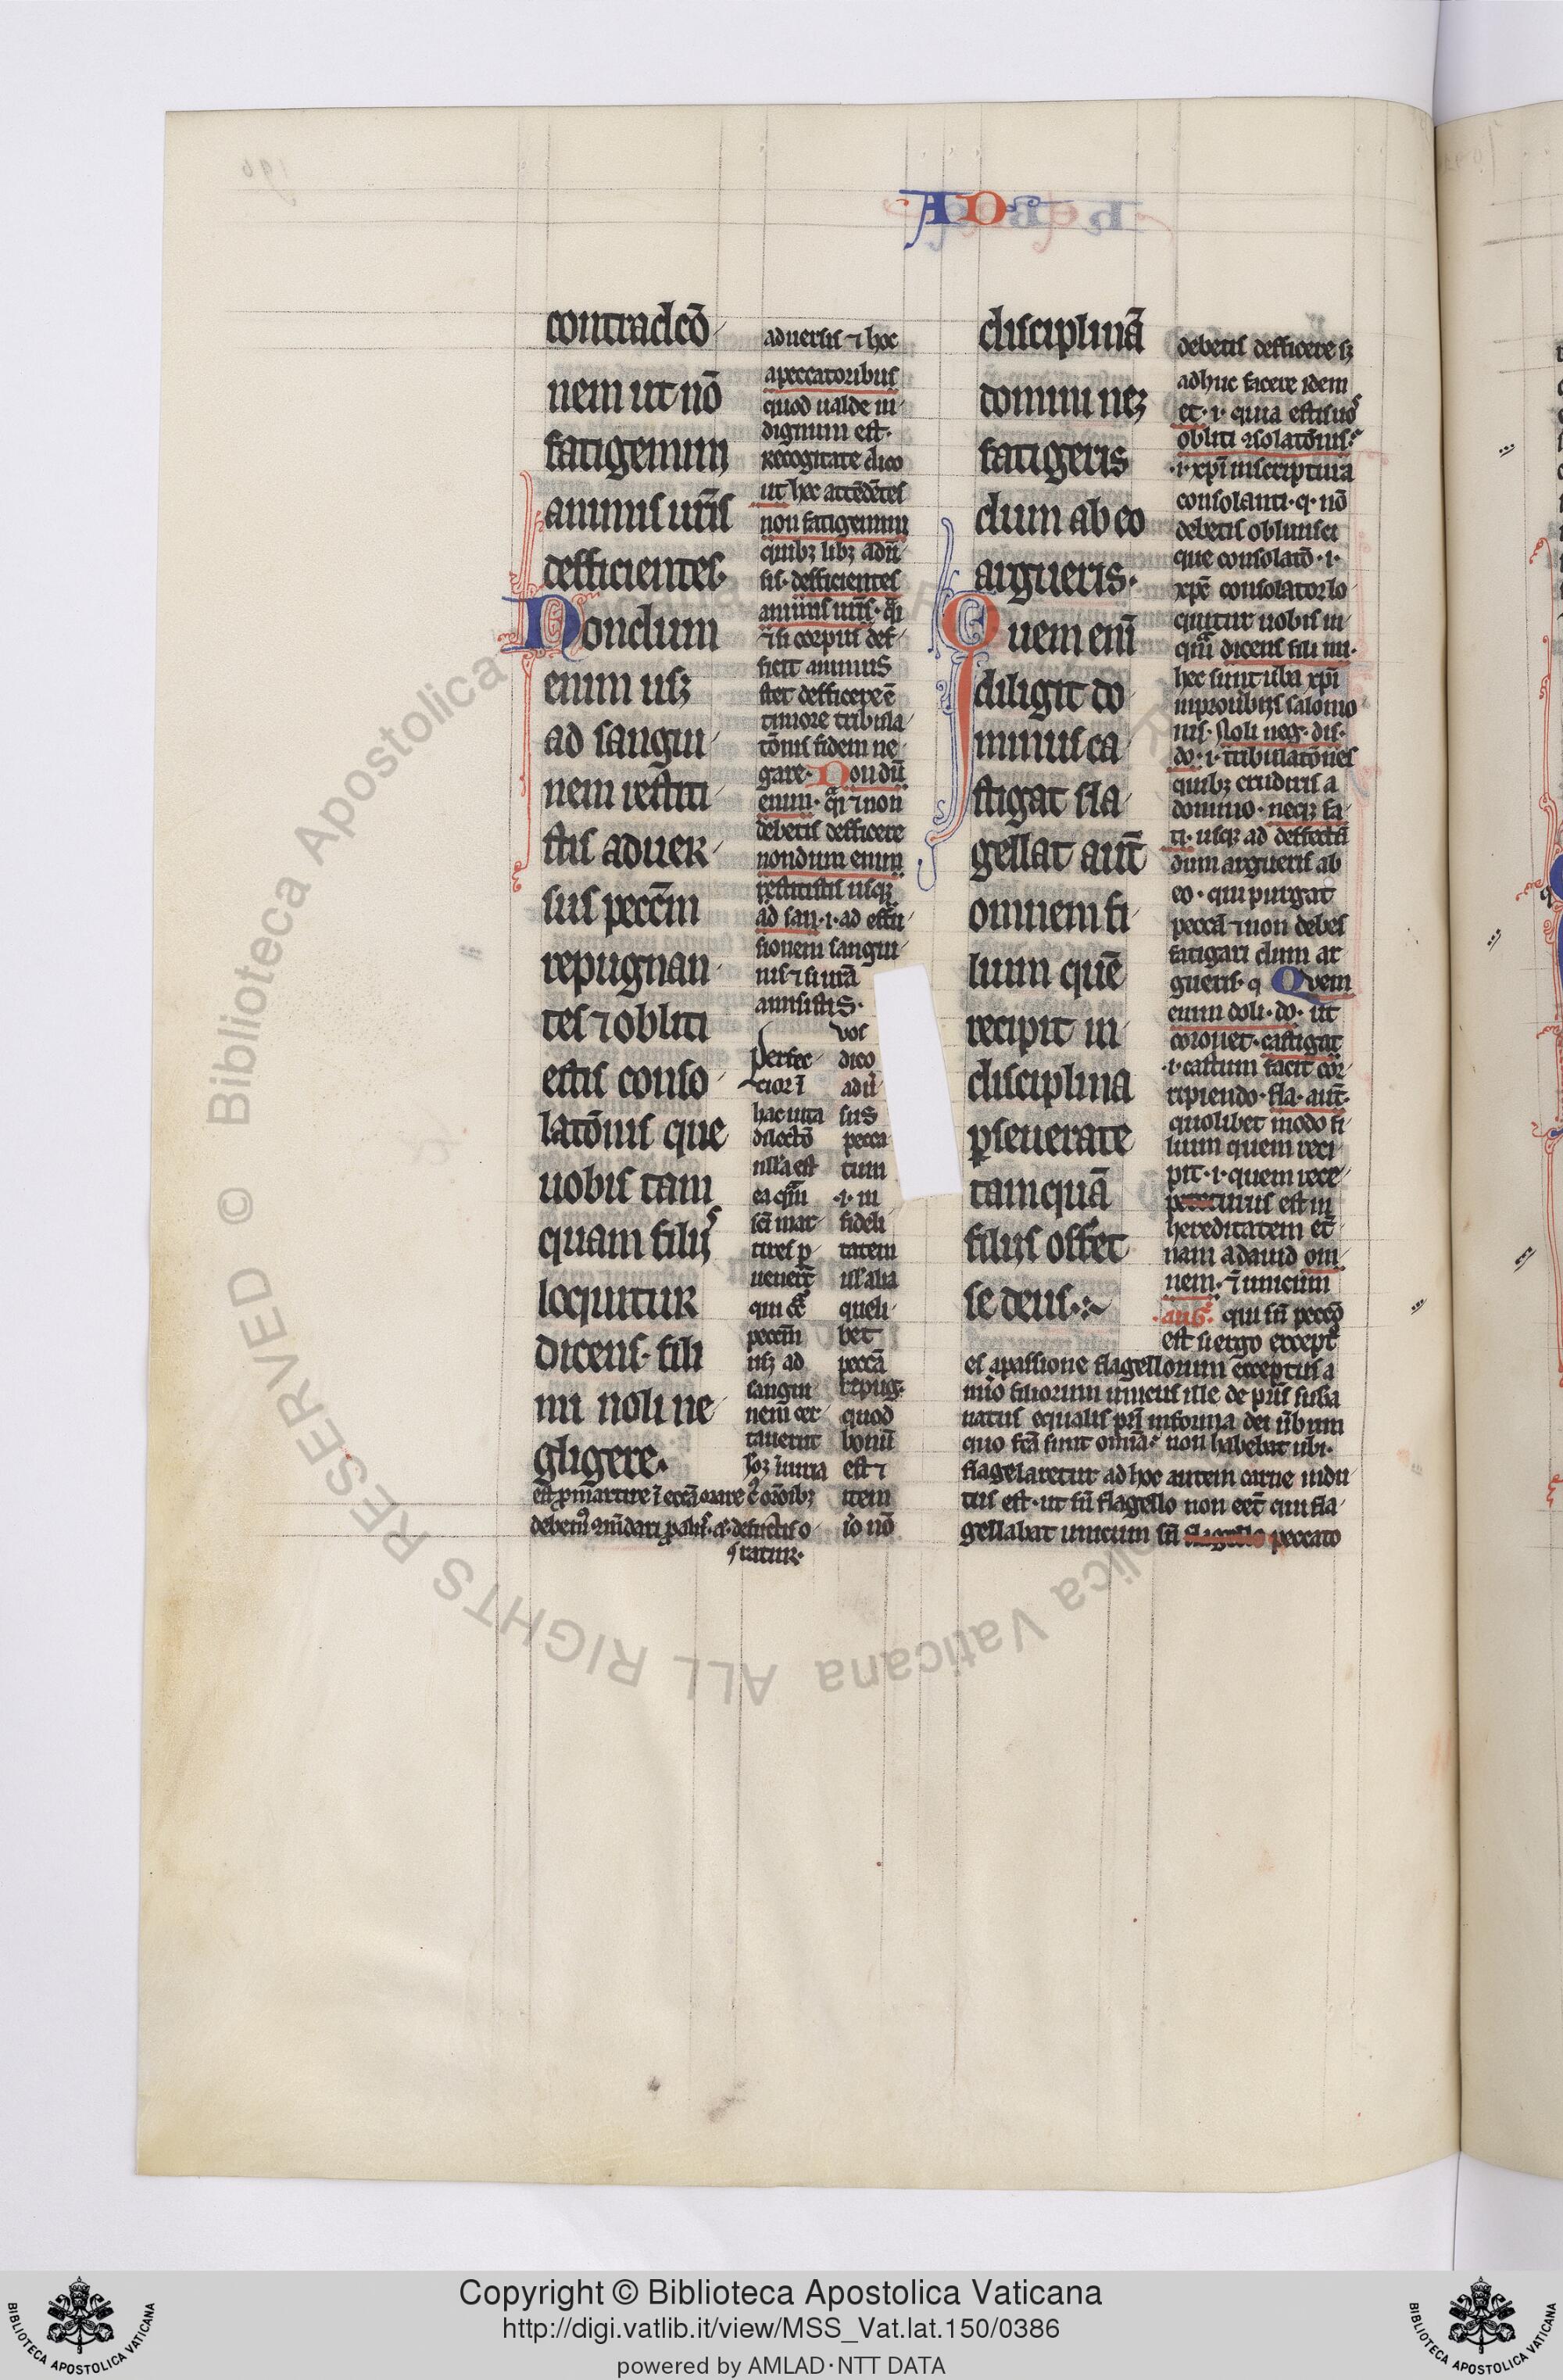 AD
contradcō
nem ut nō
fatigemini
animis ur̄is
defficientes·
Nondum
enim usqꝫ
ad sangui
nem restiti
stis aduer
sus pecc̄m
repugnan
tes ⁊ obliti
estis conso
latōnis que
uobis tam
quam filijs
loquitur
dicens· fili
mi noli ne
gligere·
aduersis ⁊ hoc
apeccatoribus
quod ualde in
dignum est·
Recogitate dico
ut hec attēdētes
non fatigemini
quibꝫ libꝫ adū
sis· defficientes
animis ur̄is·
⁊ si corpus def
ficit animus
timore tribula
tōnis fidem ne
gare· Nondū
enim· ⁊ non
debetis defficere
nondum enim
restitistis usqꝫ
ad san·i·ad effu
sionem sangui
nis ⁊ si uita
amisistis·
perfec
tior ī
hac uita
dilectō
nulla est
ea quā
sc̄i mar
tires p
uener̄t
qui
pecc̄m
usqꝫ ad
sangui
nem cer
tauerunt
vos
dico
adū
sus
pecca
tum
·i· in
fideli
tatem
ul alia
queli
bet
peccā
repug·
quod
bonū
est ⁊
item
io nō
tatur·
disciplinā
domini neqꝫ
fatigeris
dum ab eo
argueris·
Quem enī
diligit do
minus ca
stigat fla
gellat aut̄
omnem fi
lium quē
recipit in
disciplina
ꝑseuerate
tamquā
filijs offert
se deus·
debetis defficere sꝫ
adhuc facere idem
et·i· quia estis uos
obliti ꝯsolatōnis·
·i·xp̄i inscriptura
consolanti·q· nō
debetis obliuisci
que consolatō·i·
xpē consolatorlo
quitur uobis in
quā dicens fili mi·
hec sunt uba xp̄i
inprouerbijs salomo
nis· Noli neg· dis·
do·i·tribulatōnes
quibꝫ erudiris a
domino· neqꝫ fa
ti·usqꝫ ad deffectū
dum argueris ab
eo· qui purgat
peccā ⁊ non debes
fatigari dum ar
gueris· q Quem
enim dili·do· ut
coronet· castigat
·i·castum facit cor
ripiendo· fla·aut̄·
quolibet modo fi
lium quem reci
pit·i·quem rece
pturus est in
hereditatem et̄
nam adauid om
nem· ⁊ unicum
·aug· qui sn̄ peccō
est si ergo except
es apassione flagellorum exceptus a
nūo filiorum unicus ille de pr̄is suba
natus equalis pr̄i informa dei ūbum
quo fc̄a sunt omīa· non habebat ubi
flagelaretur ad hoc autem carne indu
tus est· ut sn̄ flagello non eēt qui fla
gellabat unicum sn̄ flagello peccato
Biblioteca Apostolica Vaticana ALL RIGHTS RESERVED ©
Copyright © Biblioteca Apostolica Vaticana
http://digi.vatlib.it/view/MSS_Vat.lat.150/0386
powered by AMLAD·NTT DATA
BIBLIOTECA APOSTOLICA VATICANA
BIBLIOTECA APOSTOLICA VATICANA